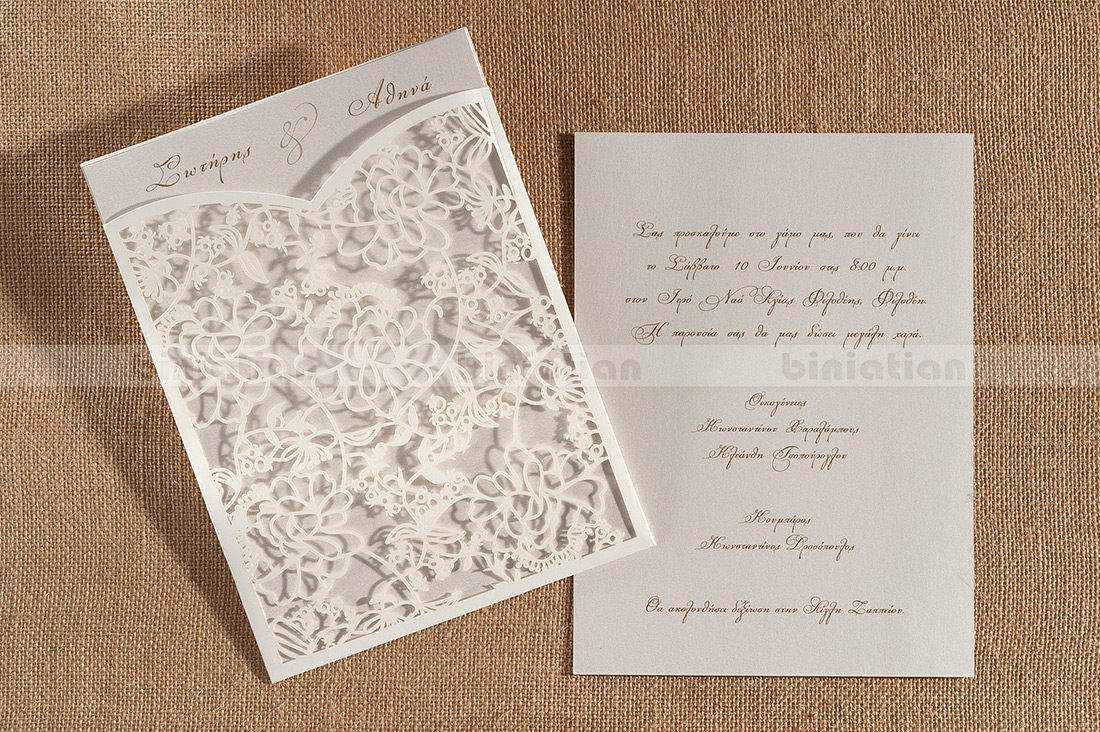 Σωτήρης & Αθηνά
Σας προσκαλούμε στο γάμο μας, που θα γίνει
το Σάββατο 10 Ιουνίου στις 8:00 μ.μ.
στον Ιερό Ναό Αγίας Φιλοθέης, Φιλοθέη.
Η παρουσία σας θα μας δώσει μεγάλη χαρά.
biniatian
biniatian
Οικογένειες
Κωνσταντίνου Χαραλάμπους
Κλεάνθη Τσοπούρογλου
Κουμπάρος
Κωνσταντίνος Δροσόπουλος
Θα ακολουθήσει δεξίωση στην Αίγλη Ζαππείου.